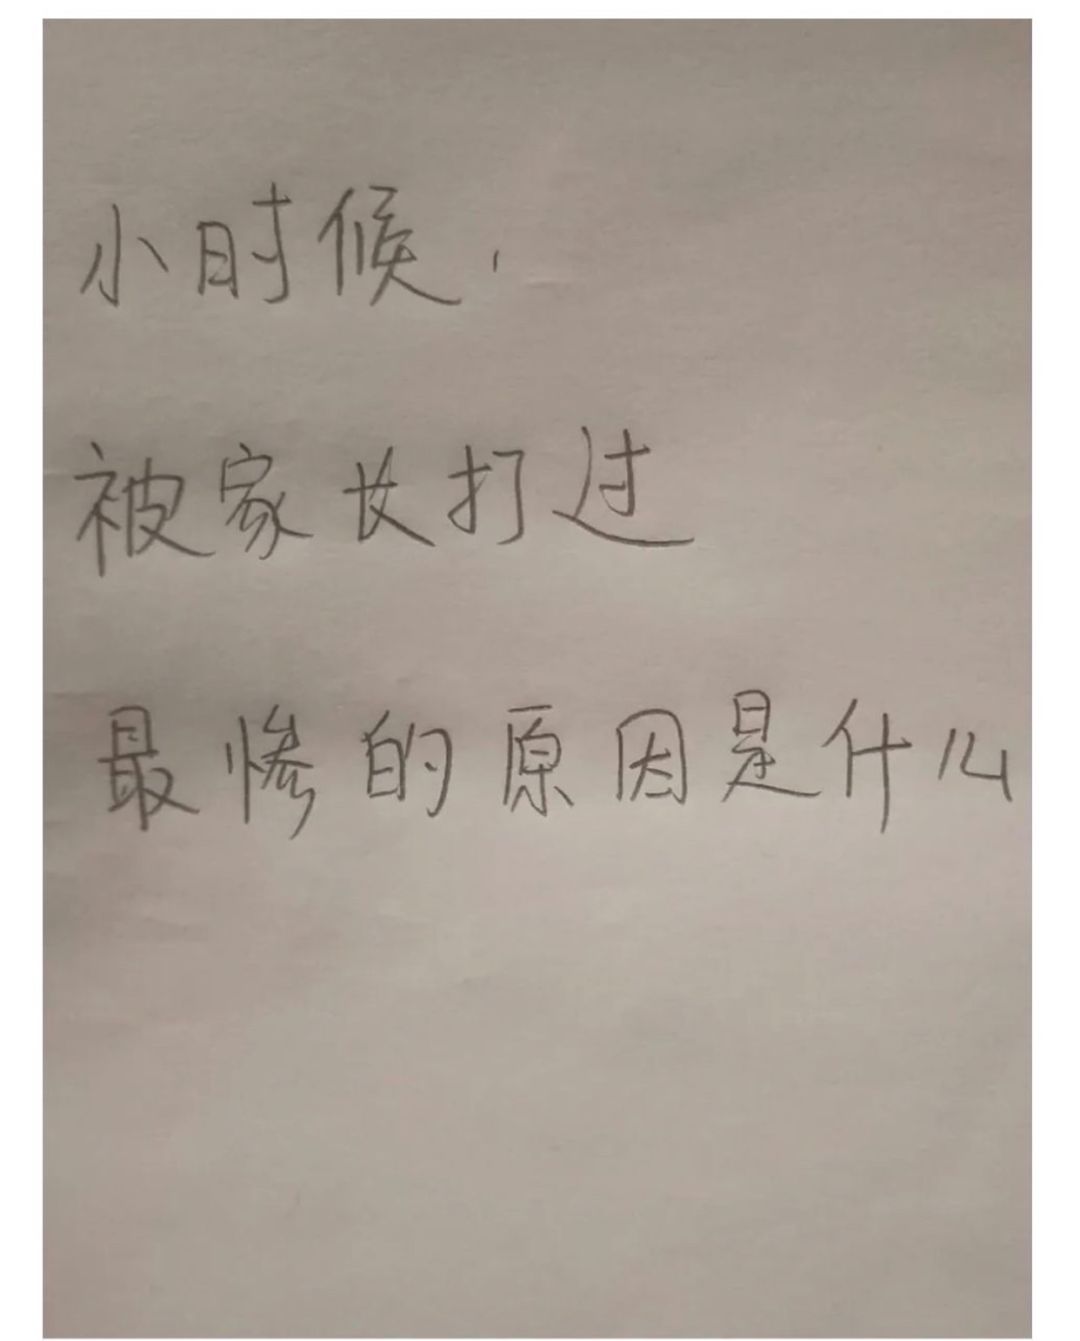 小时候，
被家长打过
最惨的原因是什么